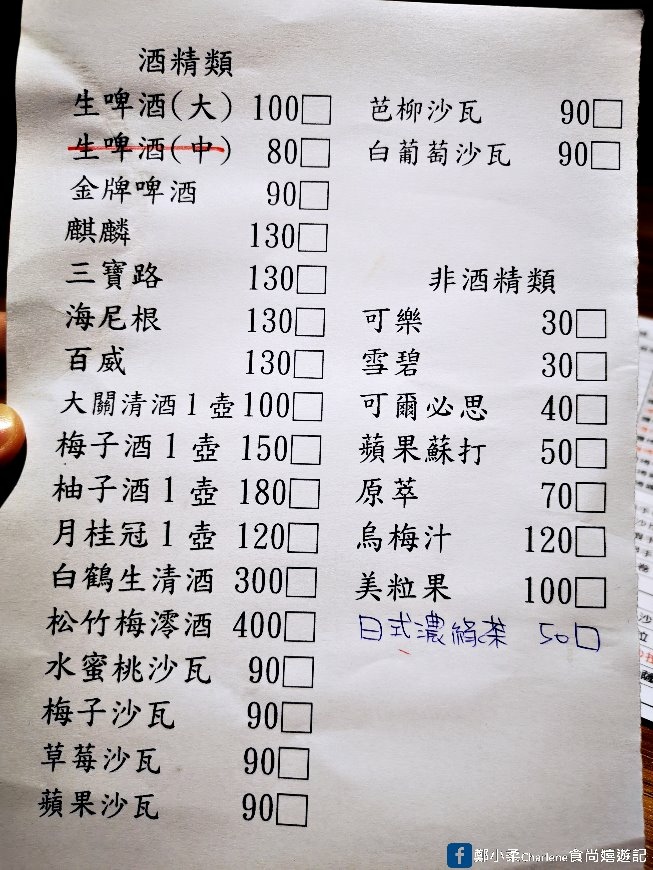 酒精類
生啤酒(大) 100□
生啤酒(中) 80□
金牌啤酒 90□
麒麟 130□
三寶路 130□
海尼根 130□
百威 130□
大關清酒1壺100□
梅子酒1壺 150□
柚子酒1壺 180□
月桂冠1壺 120□
白鶴生清酒 300□
松竹梅澪酒 400□
水蜜桃沙瓦 90□
梅子沙瓦 90□
草莓沙瓦 90□
蘋果沙瓦 90□
芭柳沙瓦 90□
白葡萄沙瓦 90□
非酒精類
可樂 30□
雪碧 30□
可爾必思 40□
蘋果蘇打 50□
原萃 70□
烏梅汁 120□
美粒果 100□
日式濃綠茶 50□
鄭小柔Charlene食尚嬉遊記